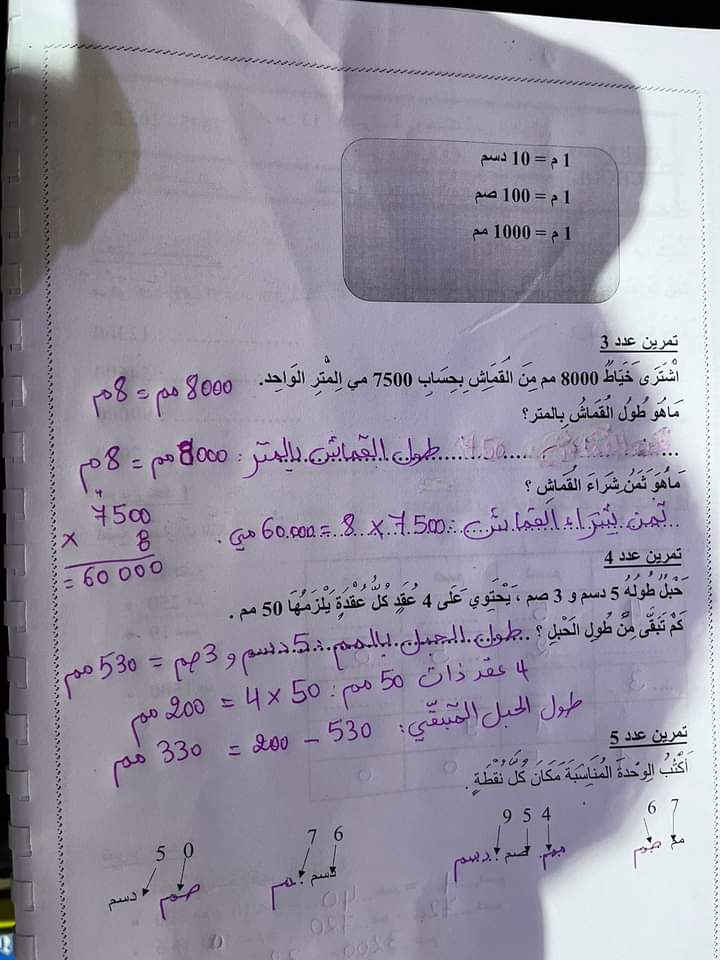 1 م = 10 دسم
1 م = 100 صم
1 م = 1000 مم
تمرين عدد 3
اشْتَرَى خَيَاطٌ 8000 مم مِنَ القُمَاشِ بِحِسَابِ 7500 مي اِلمْتِرِ الوَاحِدِ.
8000 مم = 8 م
مَاهُوَ طُولُ القُمَاشُ بِالمتر؟
طول القماش بالمتر : 8000 مم = 8 م
مَاهُوَ ثَمَنُ شِرَاءَ القُمَاش ؟
ثمن شراء القماش : 7500 × 8 = 60.000 مي.
7500
× 8
= 60 000
تمرين عدد 4
حَبْلٌ طُولُهُ 5 دسم و 3 صم ، يَحْتَوِي عَلَى 4 عُقَدٍ كُلُّ عُقْدَةٍ يَلْزَمُهَا 50 مم .
كَمْ تَبَقَّى مِنْ طُولِ الحَبْلِ ؟
طول الحبل بالمم : 5 دسم و 3 صم = 530 مم
4 عقد ذات 50 مم : 50 × 4 = 200 مم
طول الحبل المتبقّي : 530 – 200 = 330 مم
تمرين عدد 5
أَكْتُبُ الوِحْدةَ المُنَاسِبَةَ مَكَانَ كُلَّ نُقْطَةٍ .
6 7
صم مم
9 5 4
دسم صم مم
7 6
م دسم
5 0
دسم صم